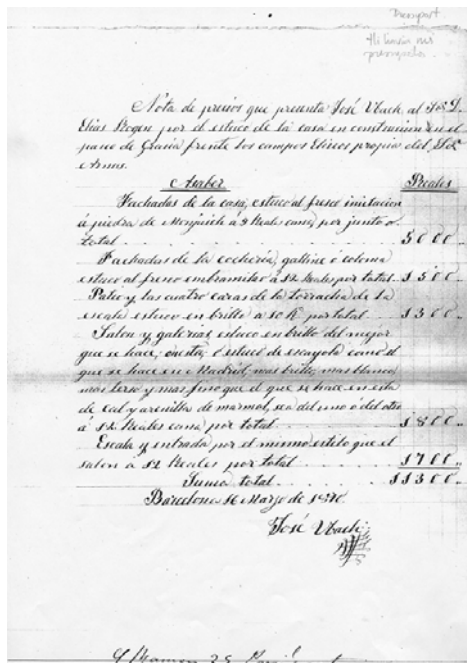 Pressupost.
Hi havia mes
pressupostos.
Nota de precios que presenta José Ubach al Sr. D.
Elias Rogen por el estuco de la casa en construccion en el
paseo de Gracia frente los campos Eliseos propia del Sr.
Arnus.
Asaber Reales
Fachadas de la casa, estuco al fresco imitacion
á piedra de Monjuich á 9 Reales cana, por junto o
total 5000..
Fachadas de la cocheria, galline ó coloma
estuco al fresco embramilar á 12 Reales por total 1500..
Pateo y las cuatro caras de la torracha de la
escala estuco en brillo a 10 R por total 1300..
Salon y galerias, estuco en brillo del mejor
que se hace, ó estuco de escayola como el
que se hace en Madrid, mas brillo, mas blanco
mas terso y mas fino que el que se hace en esta
de cal y arenillas de marmol, sea del uno ó del otro
á 12 Reales cana por total 1800..
Escala y entrada por el mismo estilo que el
salon á 12 Reales por total 1700..
Suma total 11300..
Barcelona 16 Marzo de 1870
José Ubach